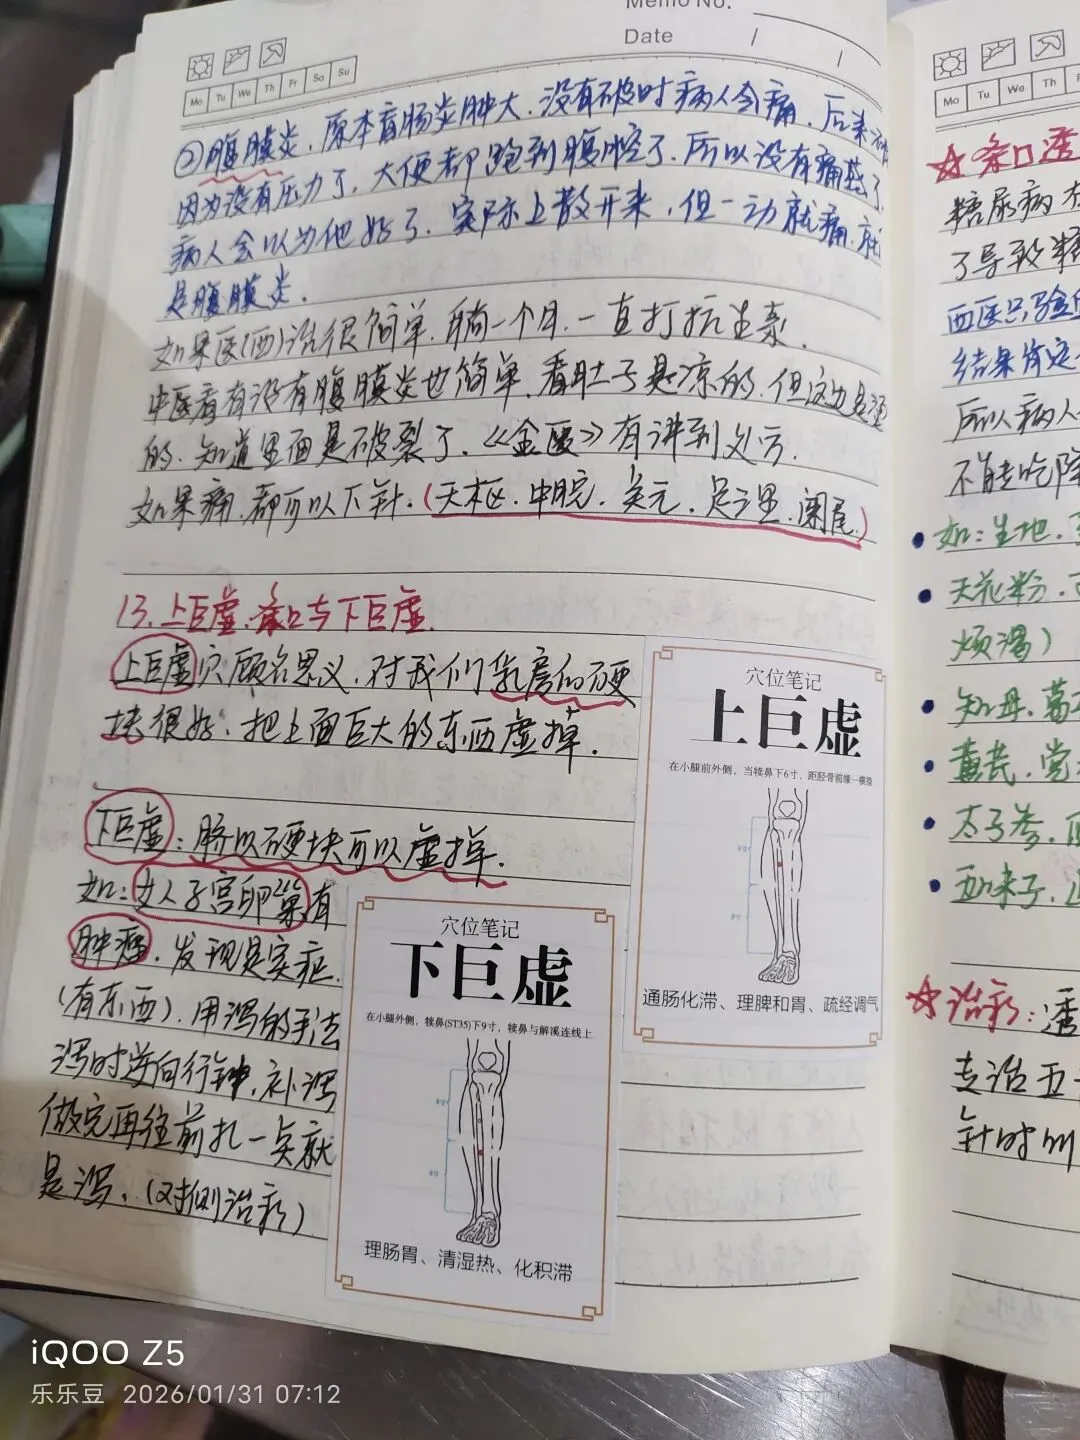 Memo No.
Date / /
Mo Tu We Th Fr Sa Su
②腹膜炎,原本盲肠炎肿大.没有破时病人会痛.后来
因为没有压力了,大便都跑到腹腔了.所以没有痛甚了.
病人会以为他好了.实际上散开来,但一动就痛.就
是腹膜炎.
如果医(西)治很简单.躺一个月.一直打抗生素.
中医看有没有腹膜炎也简单.看肚子是凉的.但这边是
的.知道里面是破裂了.《金匮》有讲到处方.
如果痛,都可以下针.(天枢.中脘.关元.足三里.阑尾.)
13.上巨虚.条口与下巨虚.
上巨虚穴顾名思义.对我们乳房的硬
块很好.把上面巨大的东西虚掉.
下巨虚:脐以硬块可以虚掉.
如:女人子宫卵巢有
肿瘤.发现是实症.
(有东西).用泻的手法
泻时逆向行针.补泻
做完再往前扎一点就
是泻.(对侧治疗)
穴位笔记
上巨虚
在小腿前外侧,当犊鼻下6寸,距胫骨前缘一横指
通肠化滞、理脾和胃、疏经调气
穴位笔记
下巨虚
在小腿外侧,犊鼻(ST35)下9寸,犊鼻与解溪连线上
理肠胃、清湿热、化积滞
Mo Tu We Th
☆条口透
糖尿病
了导致糖
西医只验
结果肯定
所以病人
不能吃降
如:生地.
天花粉.
烦渴)
知母.葛
黄芪.党
太子参.
五味子.
☆治疗:透
专治五
针时
iQOO Z5
乐乐豆 2026/01/31 07:12